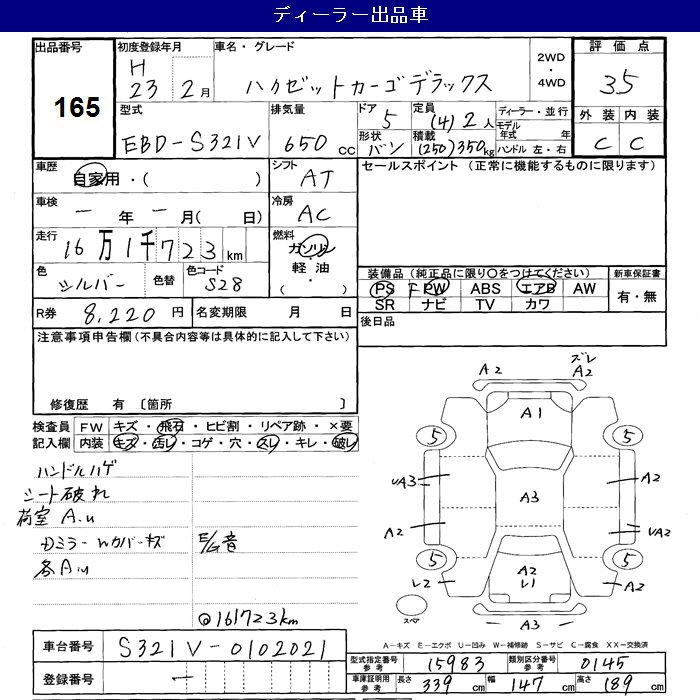 ディーラー出品車
出品番号 165
初度登録年月 H 23年 2月
車名・グレード ハイゼットカーゴデラックス
2WD ・ 4WD
評価点 3.5
外装 C 内装 C
型式 EBD-S321V
排気量 650 cc
ドア 5 形状 バン
定員 (4) 2人 積載 (250) 350kg
ディーラー・並行
モデル年式 年
ハンドル 左・右
車歴 自家用・( )
シフト AT
セールスポイント (正常に機能するものに限ります)
車検 ー年ー月( 日)
冷房 AC
走行 16万1千723km
燃料 ガソリン 軽油 ( ・ )
色 シルバー 色替 色コード S28
装備品 (純正品に限り○をつけてください) 新車保証書
PS PW ABS エアB AW 有・無
SR ナビ TV カワ
R券 8,220円 名変期限 月 日
後日品
注意事項申告欄 (不具合内容等は具体的に記入して下さい)
修復歴 有 〔箇所 〕
検査員 FW キズ・飛石・ヒビ割・リペア跡・×要
記入欄 内装 キズ・汚レ・コゲ・穴・スレ・キレ・破レ
ハンドルハゲ
シート破れ
荷室 A.u
Dミラーwカバーキズ
E/G音
各A.u
@161723km
A2 ズレ A2
A1
5 5
UA3 A3 A2
A2 UA2
5 5
L2 A2 L1 A2
スペア A3 A3
A−キズ E−エクボ U−凹み W−補修跡 S−サビ C−腐食 XX−交換済
車台番号 S321V-0102021
登録番号 ー
型式指定番号 参考 15983 類別区分番号 参考 0145
車庫証明用 参考 長さ 339 cm 幅 147 cm 高さ 189 cm